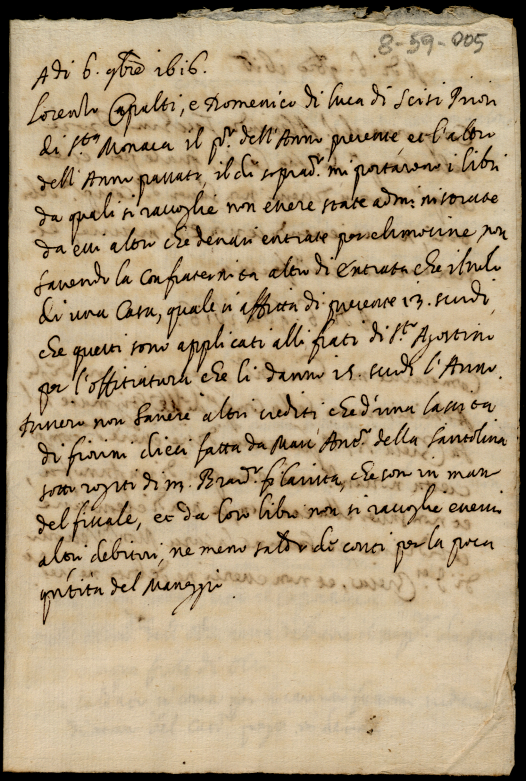 8-59-005
Adi 6. 9bre 1616.
Lorenzo Capalti, e Domenico di Luca di Scisi Priori
di Sta Monaca il po. dell'Anno presente, et l'altro
dell'Anno passato, il dì soprado. mi portarono i libri
da quali si raccoglie non essere state administrate
da essi altro che denari entrate per elemosine non
havendo la Confraternita altro di entrata che il solo
di una Casa, quale si affitta di presente 13. scudi,
che questi sono applicati alli frati di Sto Agostino
per l'offitiatura che li danno 15. scudi l'Anno.
non havere altri crediti che d'una lascita
di fiorini dieci fatta da Mari' Anto. della Santolina
sotto rogiti di m. che son in man
del fiscale, et da loro libro non si raccoglie esservi
altri debitori, ne meno saldo de conti per la poca
qntita del Maneggio.